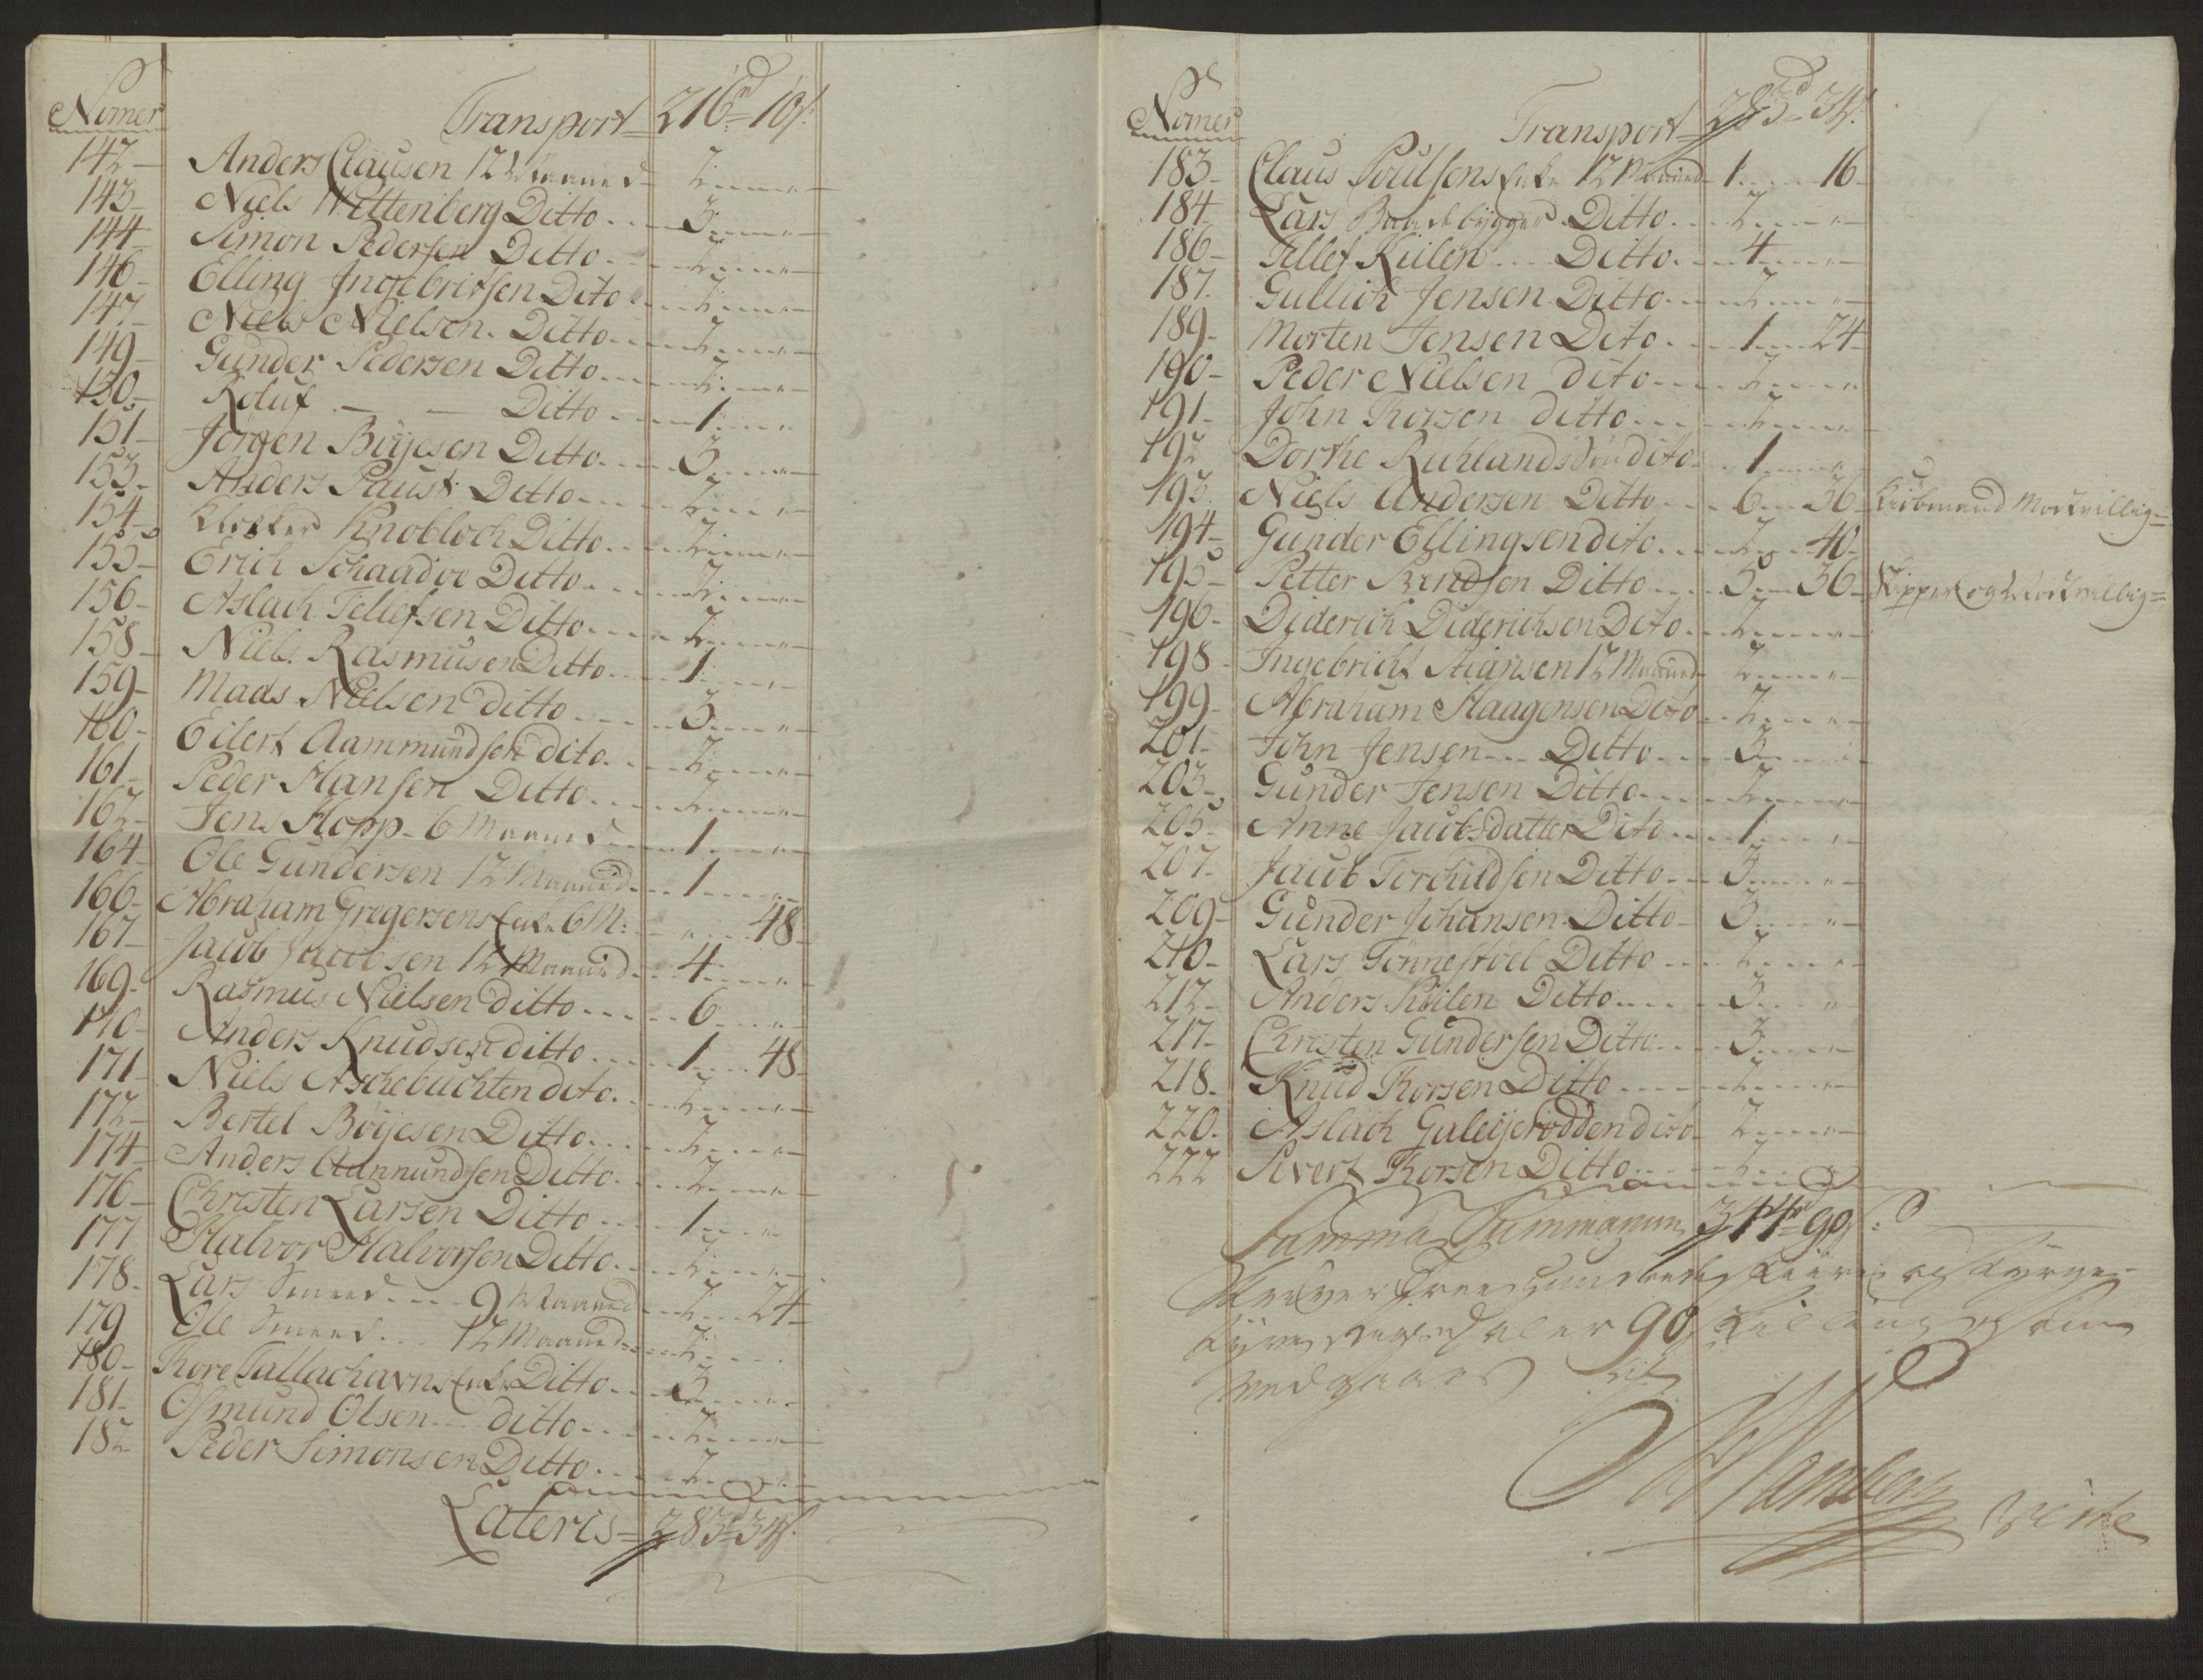 Nomer Transport 216 rd 10 s:
142 Anders Clausen 12 Maaned 2
143 Niels Wittenberg Ditto 3
144 Simon Pedersen Ditto 2
146 Elling Ingebritsen Dito 2
147 Niels Nielsen Ditto 2
149 Gunder Pedersen Ditto 2
150 Roluf Ditto 1
151 Jörgen Böÿesen Ditto 3
153 Anders Paust Ditto 2
154 Klocker Knobloch Ditto 2
155 Erich Schaadoe Ditto 2
156 Aslach Tellefsen Ditto 2
158 Niels Rasmusen Ditto 1
159 Mads Nielsen ditto 3
160 Eilert Aammundsen dito 2
161 Peder Hansen Ditto 2
162 Jens Hopp 6 Maaned 1
164 Ole Gundersen 12 Maaned 1
166 Abraham Gregersens Enke 6 M: 48
167 Jacob Jacobsen 12 Maaned 4
169 Rasmus Nielsen ditto 6
170 Anders Knudsen ditto 1 48
171 Niels Aschebuchten dito 2
172 Bertel Böÿesen Ditto 2
174 Anders Aanmundsen Ditto 2
176 Christen Larsen Ditto 1
177 Halvor Halvorsen Ditto 2
178 Lars Smeed 9 Maaned 2 24
179 Ole Smeed 12 Maaned 2
180 Thore Tallachavns Enke Ditto 3
181 Osmund Olsen ditto 2
182 Peder Simonsen Ditto 2
Lateris 283 rd 34 s:
Nomer Transport 283 rd 34 s:
183 Claus Poulsens Enke 12 Maaned 1 16
184 Lars Baadebÿgger Ditto 2
186 Tellef Kielen Ditto 4
187 Gullich Jensen Ditto 2
189 Morten Jensen Dito 1 24
190 Peder Nielsen dito 2
191 John Thorsen ditto 2
192 Dorthe Ruhlands dito 1
193 Niels Andersen Ditto 6 36 Kiöbmand
194 Gunder Ellingsen dito 2 40
195 Petter Berndsen Ditto 5 36 Skipper
196 Diderich Diderichsen Dito 2
198 Ingebricht Stiansen 12 Maaned 2
199 Abraham Haagensen Dito 2
201 John Jensen Ditto 3
203 Gunder Jensen Ditto 2
205 Anne Jacobsdatter Dito 1
207 Jacob Torchildsen Ditto 3
209 Gunder Johansen Ditto 3
210 Lars Tönnestoel Ditto 2
212 Anders Kielen Ditto 3
217 Christen Gundersen Ditto 3
218 Knud Thorsen Ditto 2
220 Aslach Galeÿerodden dito 2
222 Sivert Thorsen Ditto 2
Summa Summarum 344 rd 90 s:
Skriver Treehundrede fiire og fÿrge-
tÿve Rigsdaler 90 skilling som
vedgaaes